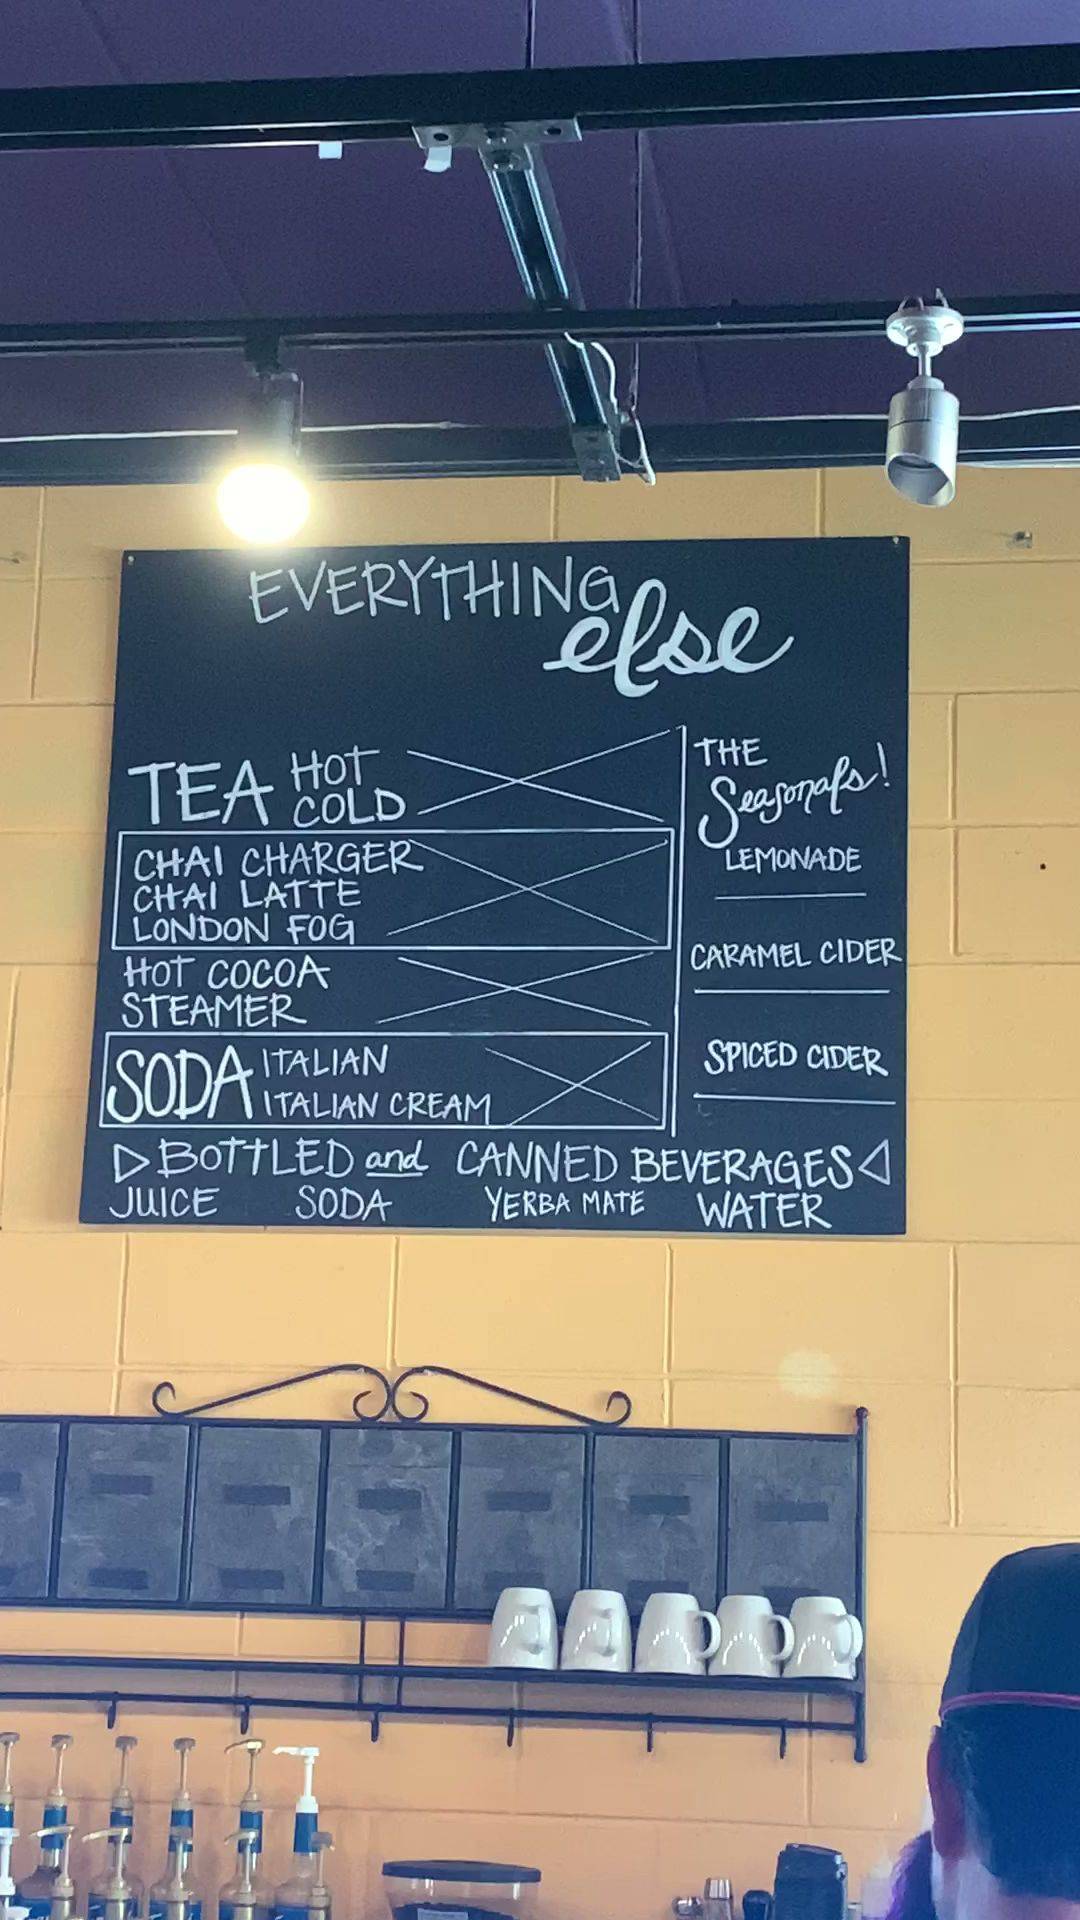 EVERYTHING
else
TEA HOT
COLD
CHAI CHARGER
CHAI LATTE
LONDON FOG
HOT COCOA
STEAMER
SODA ITALIAN
ITALIAN CREAM
THE
Seasonals!
LEMONADE
CARAMEL CIDER
SPICED CIDER
BOTTLED and CANNED BEVERAGES
JUICE SODA YERBA MATE WATER